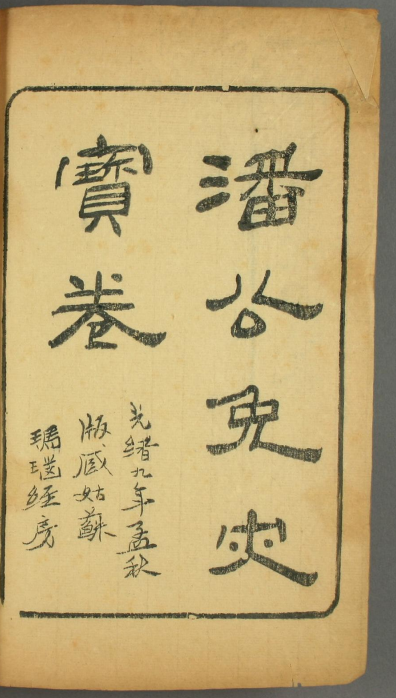 潘公免灾
寶卷
光緒九年孟秋
版藏姑蘇
瑪瑙經房